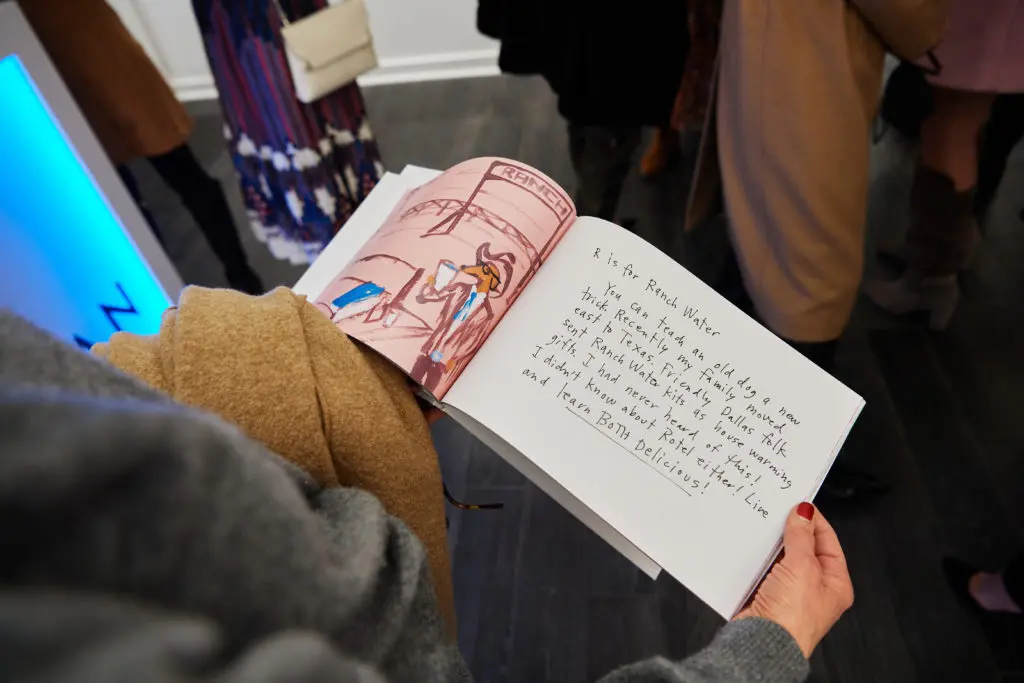 RANCH
R is for Ranch Water
You can teach an old dog a new
trick. Recently my family moved
east to Texas. Friendly Dallas folk
sent Ranch Water kits as house warming
gifts. I had never heard of this!
I didn't know about Rotel either! Live
and learn BOTH Delicious!
N